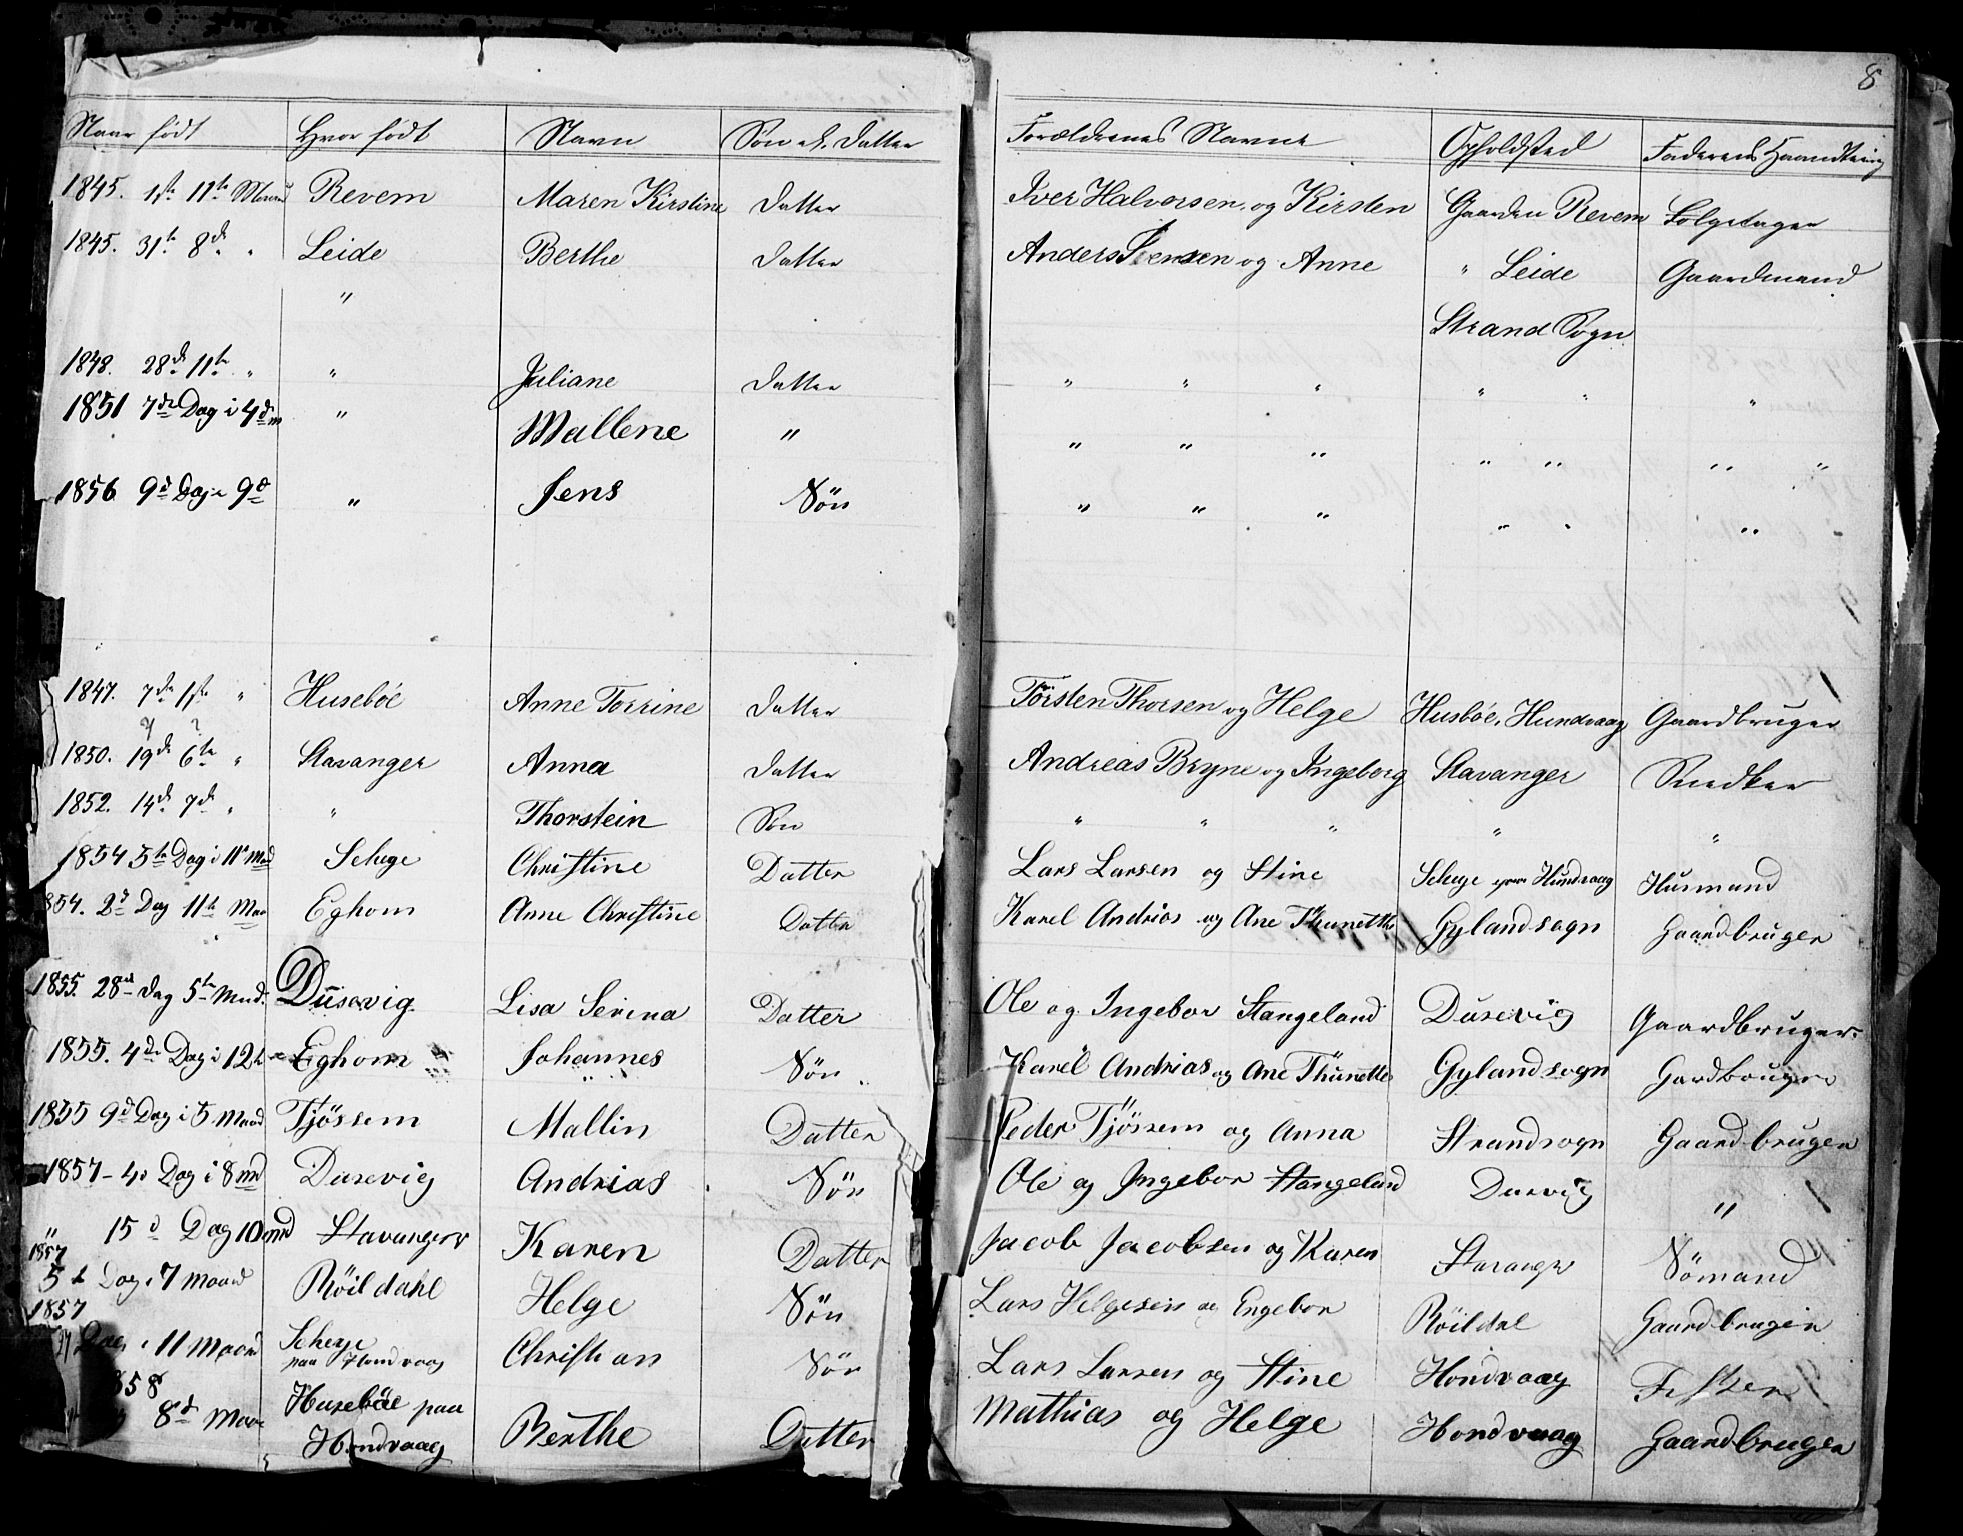 8
Naar født Hvor født Navn Søn el. Datter Forældrenes Navne Opholdsted Faderens Haandtering
1845. 1ste 11te Maaned Revem Maren Kirstine Datter Iver Halvorsen og Kirsten Gaarden Revem Folgetager
1845. 31te 8de " Leide Berthe Datter Anders Jensen og Anne " Leide Gaardmand
" Strand Sogn
1848. 28de 11te " " Juliane Datter " " " " " "
1851 7de Dag i 4de m " Mallene " " " " " " " "
1856 9d Dag i 9d " Jens Søn " " " " " "
1847. 7de 1ste " Huseböe Anne Torrine Datter Törsten Thorsen og Helge Husböe, Hundvaag Gaardbruger
1850. 19de 6te " Stavanger Anna Datter Andreas Bryne og Ingeborg Stavanger Snedker
1852. 14de 7de " " Thorstein Søn " " " " "
1854 5te Dag i 11te Maad Schege Christine Datter Lars Larsen og Stine Schege Hundvaag Husmand
1854. 2d Dag 11te Maa Eghom Anne Christine Datter Karel Andrias og Ane Thunette Gylandsogn Gaardbruger
1855. 28de Dag 5te Mnd. Dusevig Lisa Serina Datter Ole og Ingebor Stangeland Dusevig Gaardbruger
1855. 4de Dag i 12te Eghom Johannes Søn Karel Andrias og Ane Thunette Gylandsogn Gardbruger
1855 9d Dag i 5 Maad Tjössem Mallin Datter Peder Tjössem og Anna Strandsogn Gaardbruger
1857 - 4d Dag i 8 md Dusevig Andrias Søn Ole og Ingebor Stangeland Dusvig "
" 15d Dag 10 md Stavanger Karen Datter Jacob Jacobsen og Karen Stavanger Sömand
1857
5t Dag i 7 Maad Röildahl Helge Søn Lars Helgesen og Engebor Röildal Gaardbruger
1857
i 11 Maad Schege Christian Søn Lars Larsen og Stine Hondvaag Fisker
paa Hondvaag
858
8d Maa Huseböe paa Berthe Datter Mathias og Helge Hondvaag Gaardbruger
Hondvaag